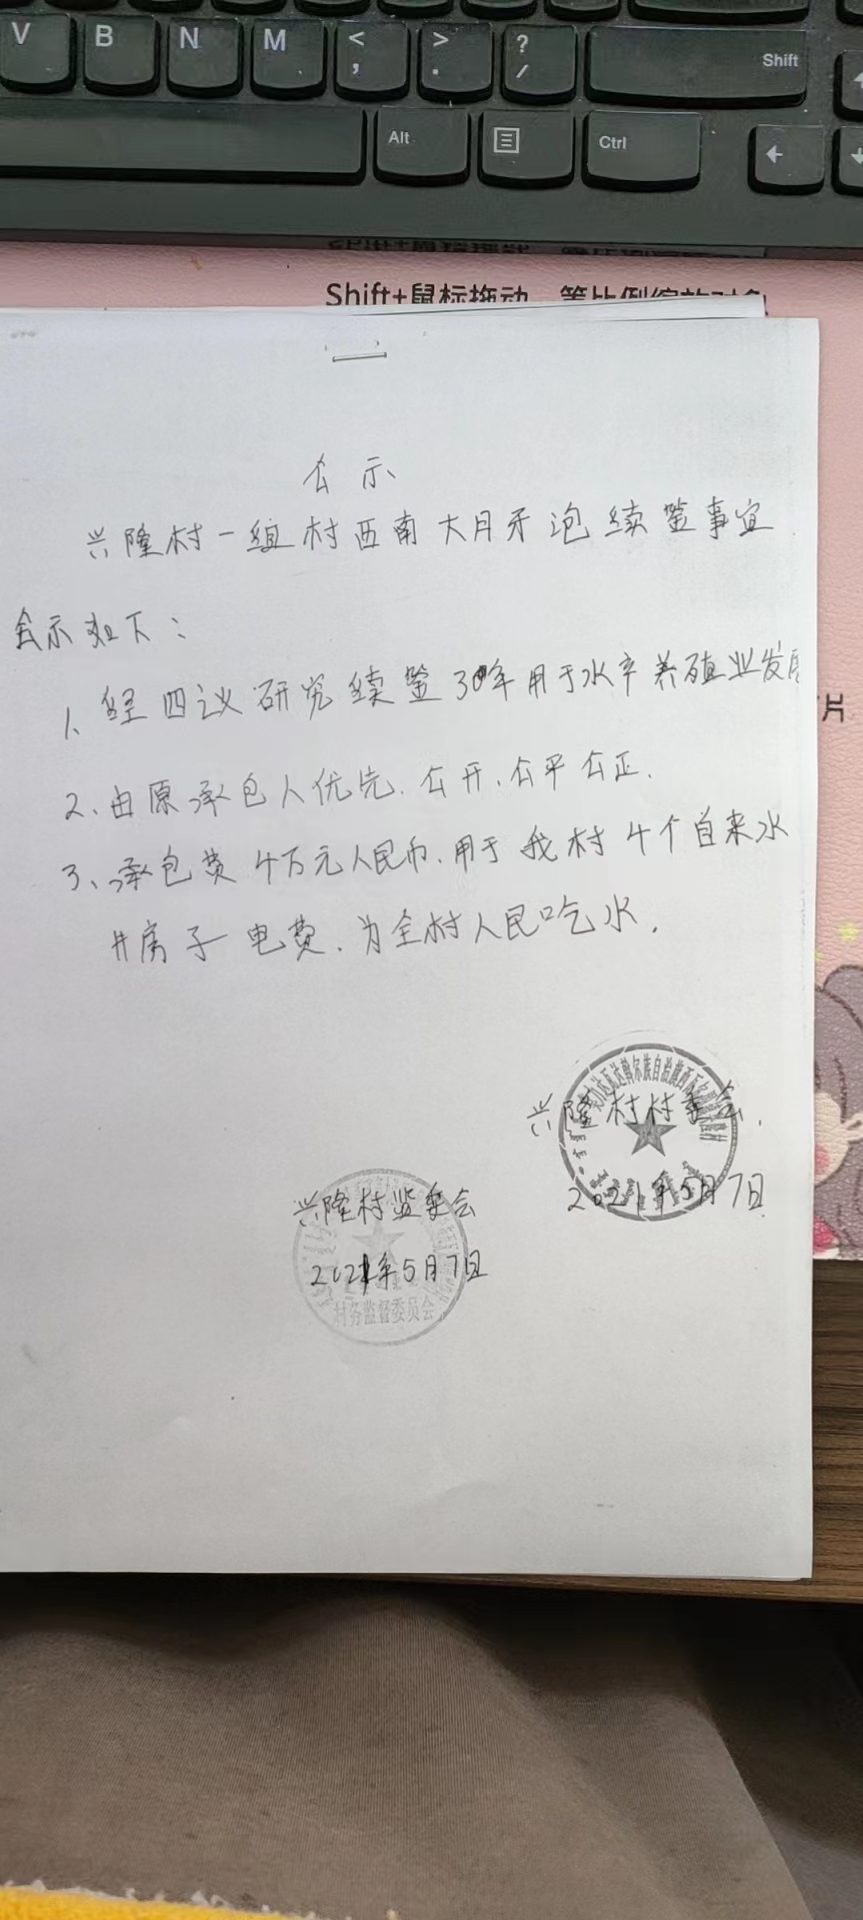 V B N M < , > . ? / Shift
Alt Ctrl
Shift+鼠标拖动
公示
兴隆村一组村西南大月牙泡续签事宜
公示如下：
1、经四议研究续签30年用于水产养殖业发展
2、由原承包人优先、公开、公平公正.
3、承包费4万元人民币、用于我村4个自来水
井房子电费、为全村人民吃水.
兴隆村村委会.
2021年5月7日
兴隆村监委会
2021年5月7日
村务监督委员会
片